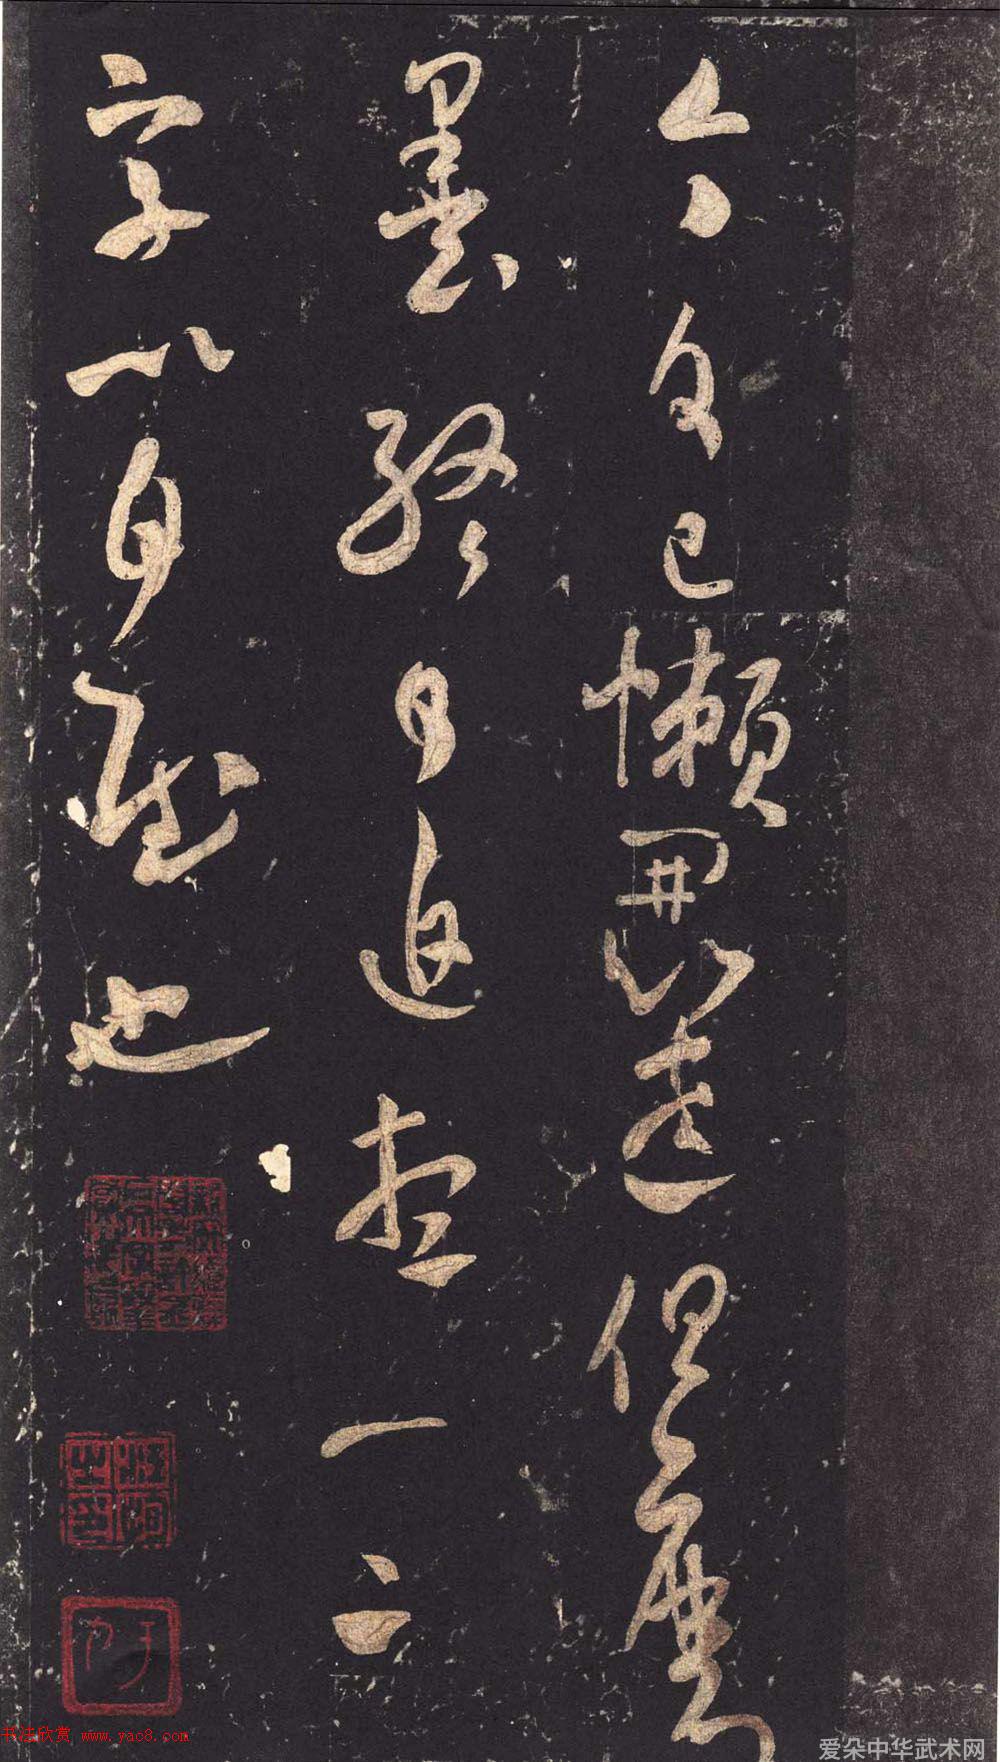 今已懶開篋但磨
墨終日追想一二
字以自慰也
书法欣赏 www.yac8.com
爱朵中华武术网